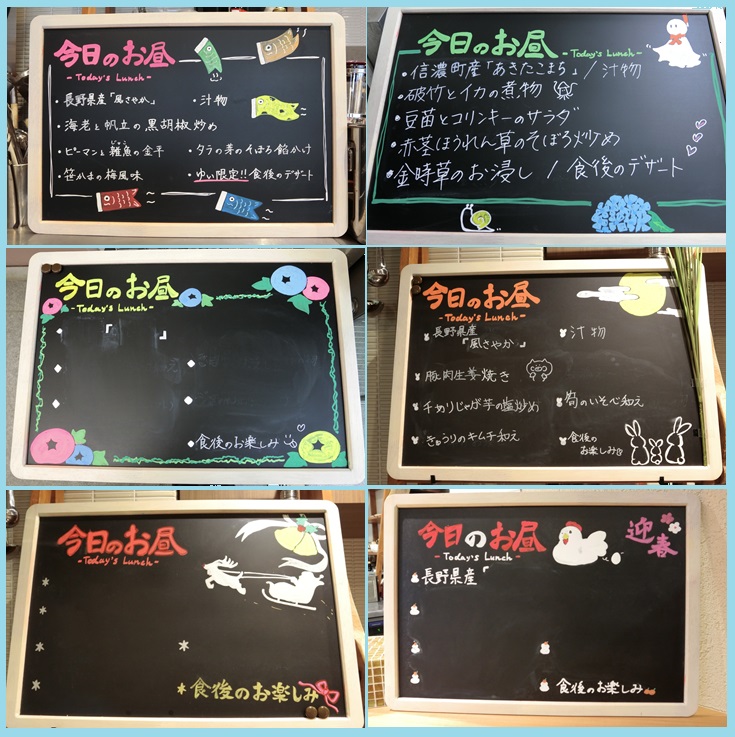 今日のお昼
- Today's Lunch -
・長野県産「風さやか」 ・汁物
・海老と帆立の黒胡椒炒め
・ピーマンと雑魚の金平 ・タラの芽のそぼろ餡かけ
じゃこ
・笹かまの梅風味 ・ゆぃ限定!!食後のデザート
今日のお昼
- Today's Lunch -
・信濃町産「あきたこまち」/汁物
・破竹とイカの煮物
・豆苗とコリンキーのサラダ
・赤茎ほうれん草のそぼろ炒め
・金時草のお浸し / 食後のデザート
今日のお昼
- Today's Lunch -
「 」
食後のお楽しみ
今日のお昼
- Today's Lunch -
長野県産
「風さやか」
汁物
豚肉生姜焼き
チキリじゃが芋の塩炒め
筍のいそべ和え
きゅうりのキムチ和え
食後の
お楽しみ
今日のお昼
- Today's Lunch -
*食後のお楽しみ
今日のお昼
- Today's Lunch -
迎春
長野県産「
食後のお楽しみ